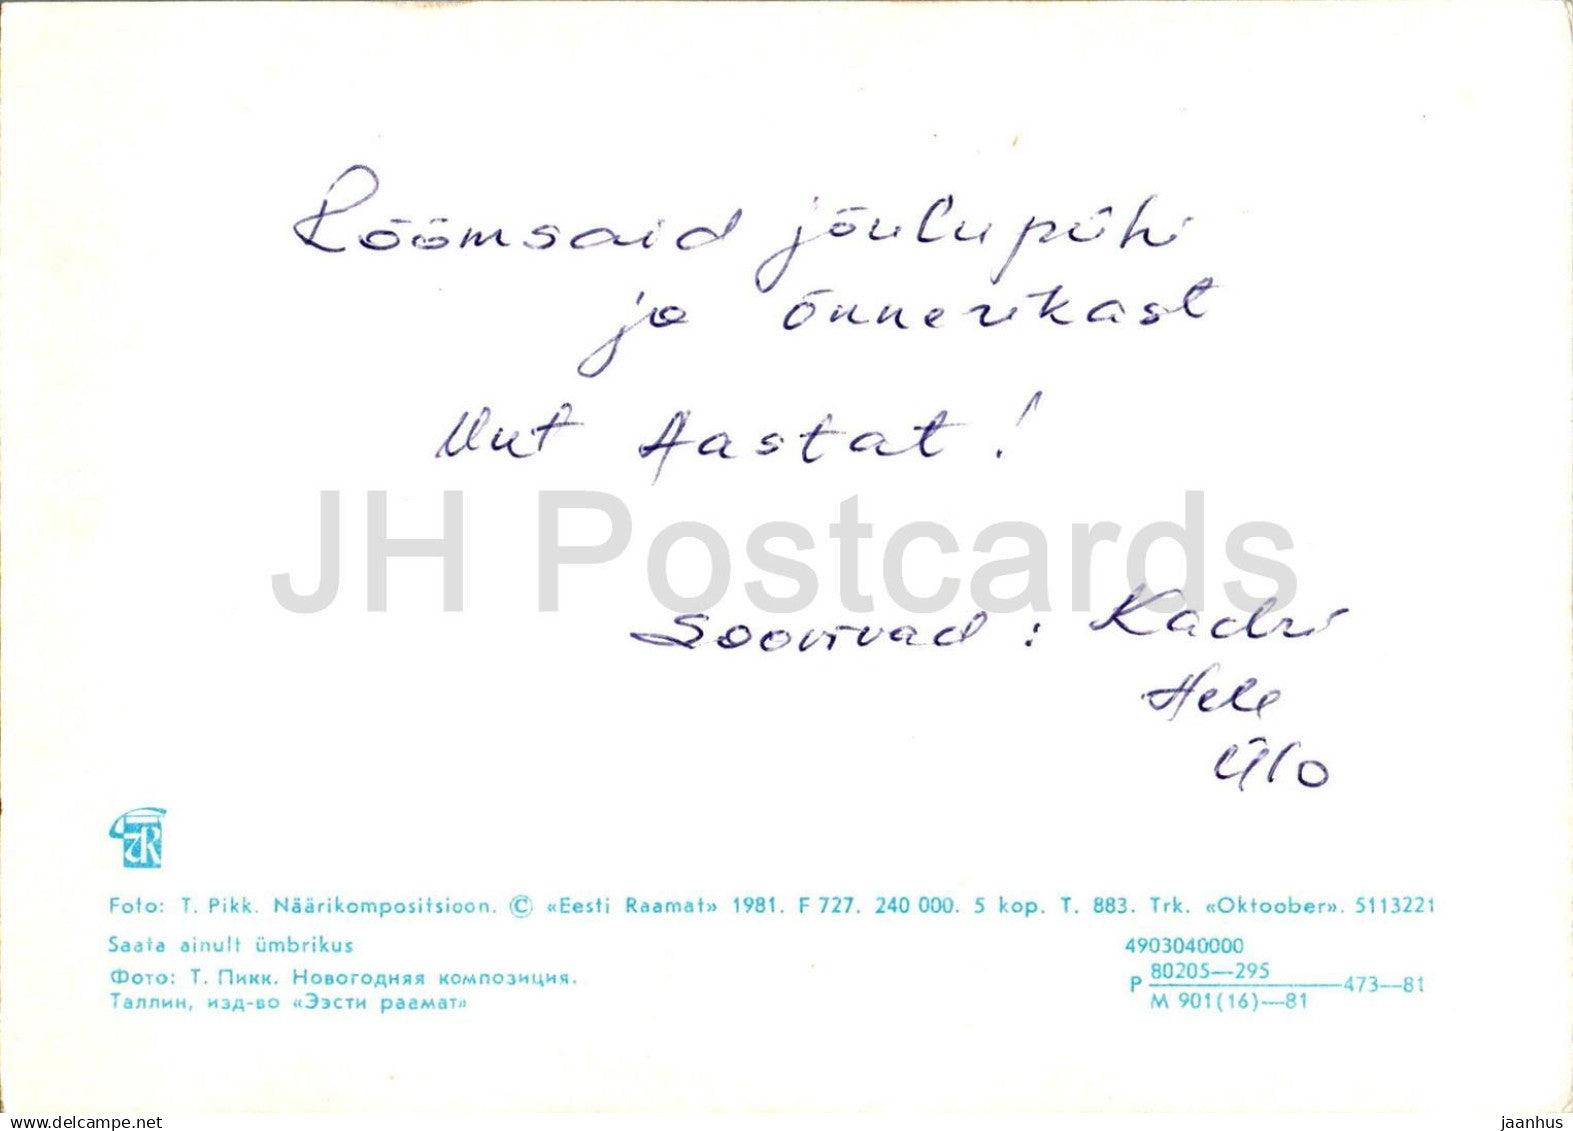 Rõõmsaid jõulupühi
ja õnnerikast
Uut Aastat!
JH Postcards
Soovivad: Kadri
Hele
Ülo
Foto: T. Pikk. Näärikompositsioon. © «Eesti Raamat» 1981. F 727. 240 000. 5 kop. T. 883. Trk. «Oktoober». 5113221
Saata ainult ümbrikus
Фото: Т. Пикк. Новогодняя композиция.
Таллин, изд-во «Ээсти раамат»
4903040000
Р 80205—295 473—81
М 901(16)—81
hipstamp.com
jaanhus